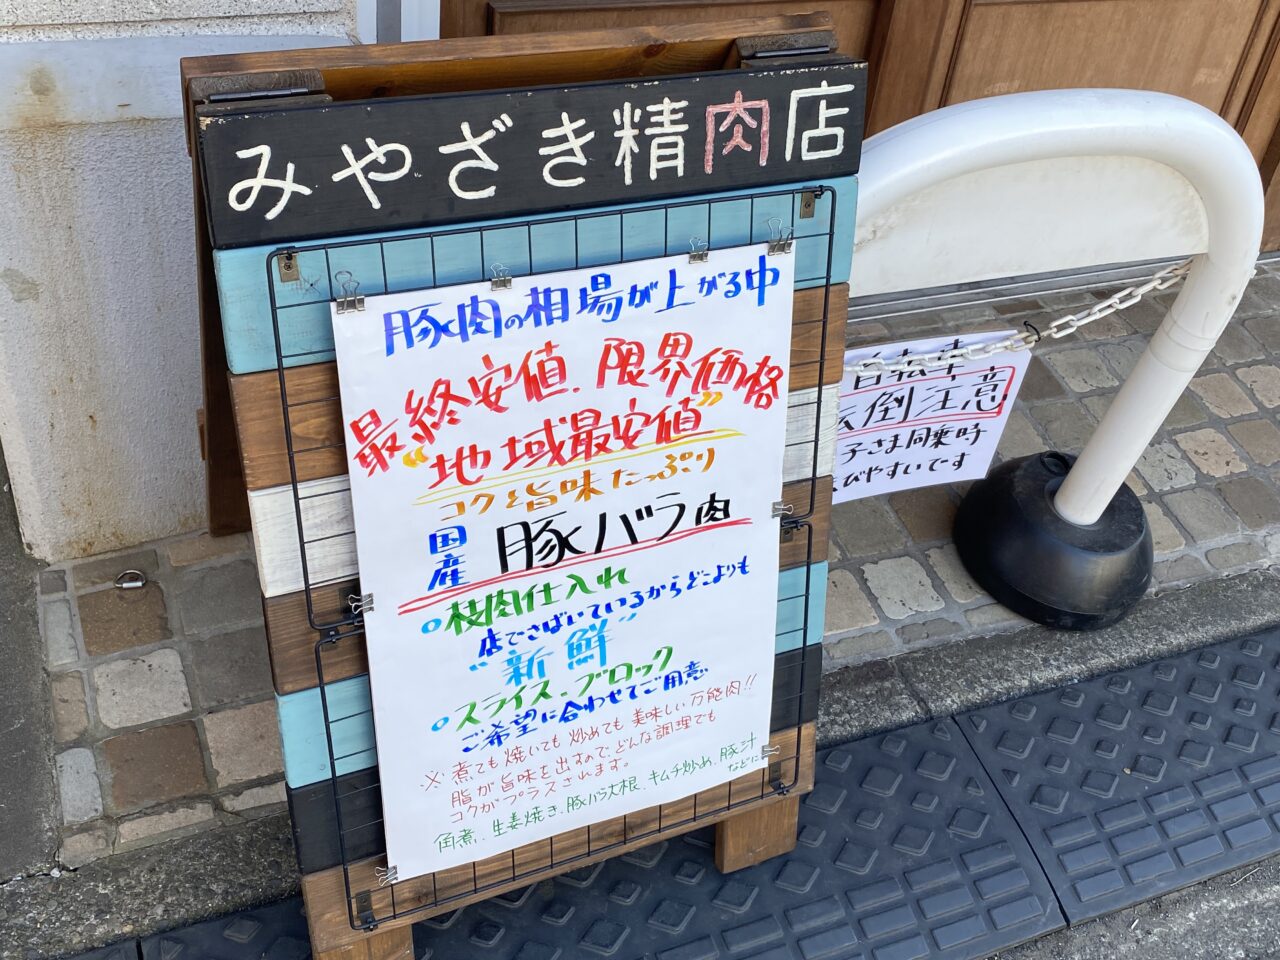 みやざき精肉店
豚肉の相場が上がる中
最終安値、限界価格
“地域最安値”
コクと旨味たっぷり
国産 豚バラ肉
○枝肉仕入れ
店でさばいているからどこよりも
“新鮮”
○スライス、ブロック
ご希望に合わせてご用意
※煮ても焼いても炒めても美味しい万能肉!!
脂が旨味を出すので、どんな調理でも
コクがプラスされます。
角煮、生姜焼き、豚バラ大根、キムチ炒め、豚汁
などに
自転車
倒注意
子さま同乗時
びやすいです